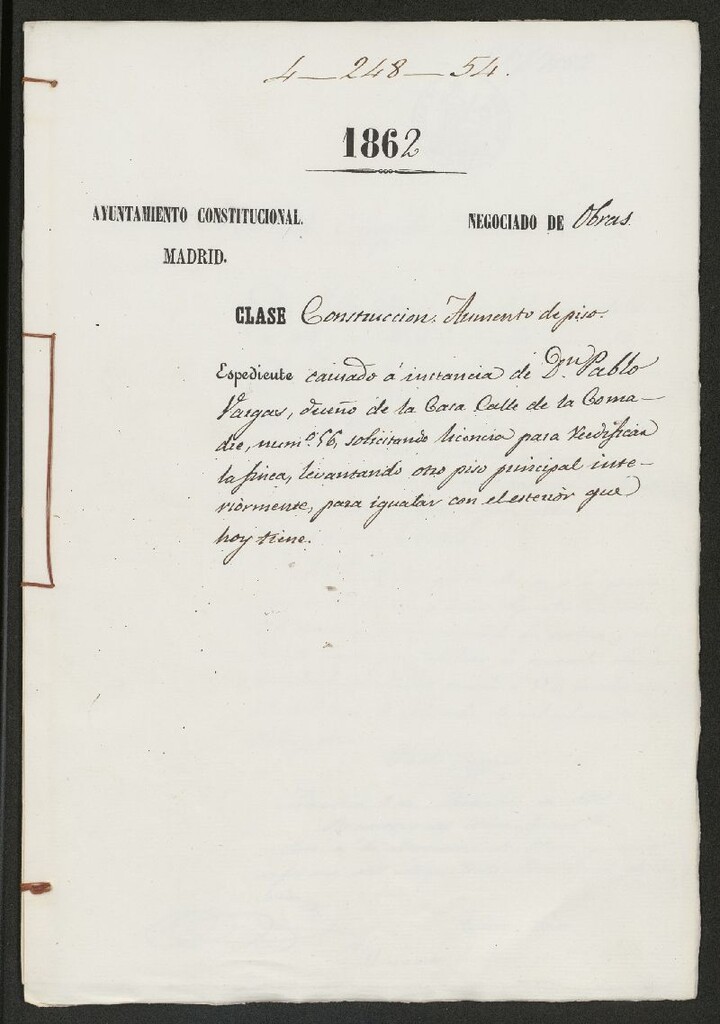 4 — 248 — 54.
1862
AYUNTAMIENTO CONSTITUCIONAL.
MADRID.
NEGOCIADO DE Obras.
CLASE Construccion. Aumento de piso.
Espediente causado á instancia de Dn. Pablo
Vargas, dueño de la Casa Calle de la Coma-
dre, num.o 56, solicitando licencia para reedificar
la finca, levantando otro piso principal inte-
riormente, para igualar con el esterior que
hoy tiene.